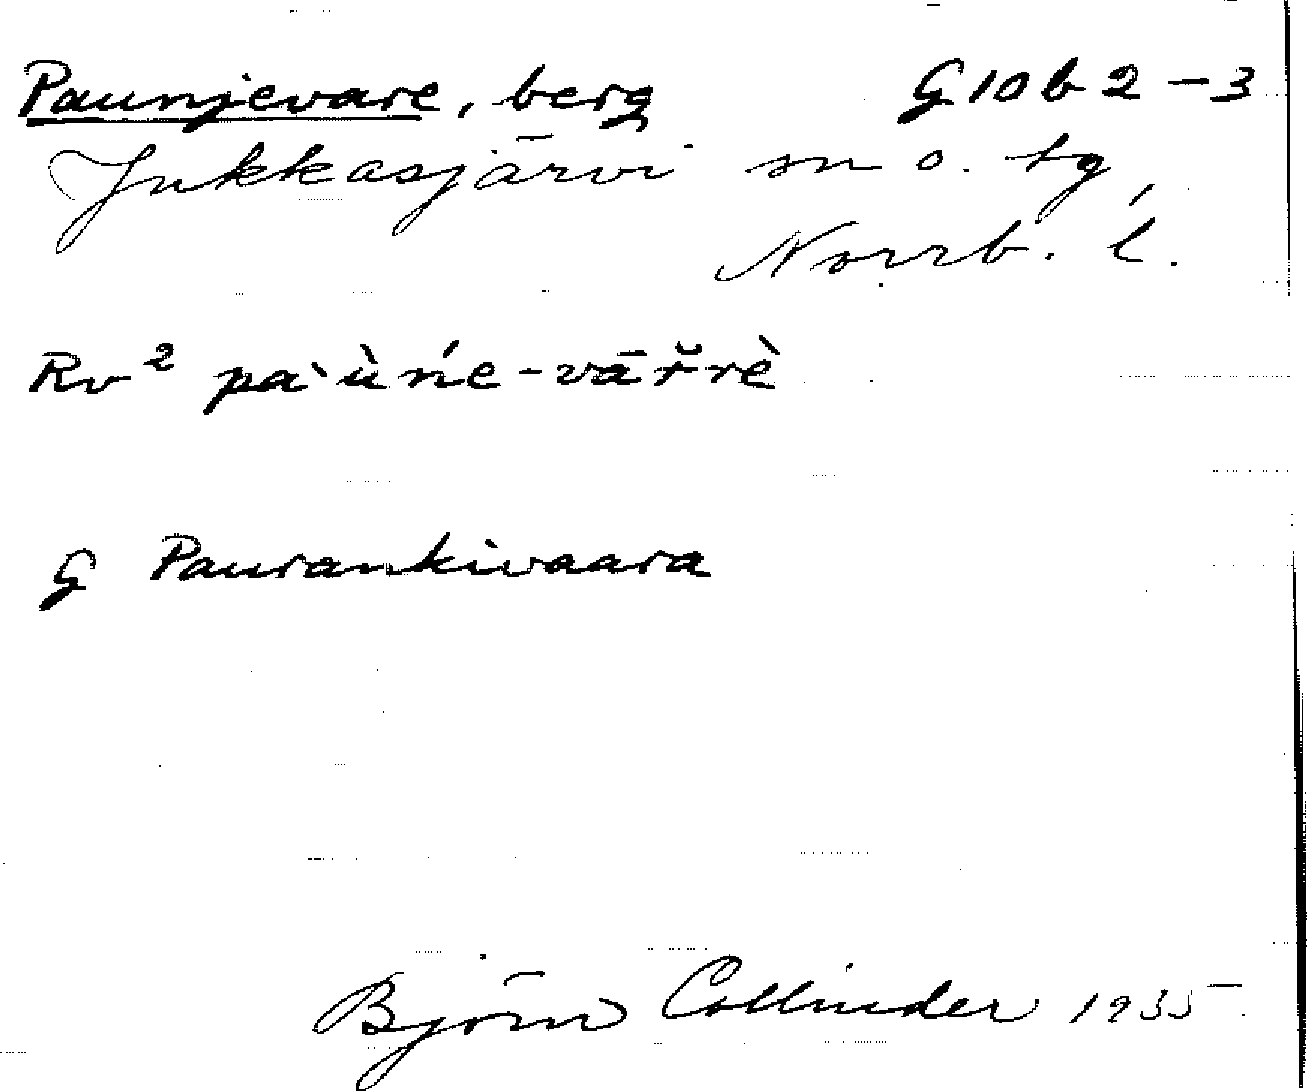 Paunjevare, berg G 10 b 2-3
Jukkasjärvi sn o. tg,
Norrb. l.
Rv² pa`ùńe-vār̆rè
G Paurankivaara
Björn Collinder 1935